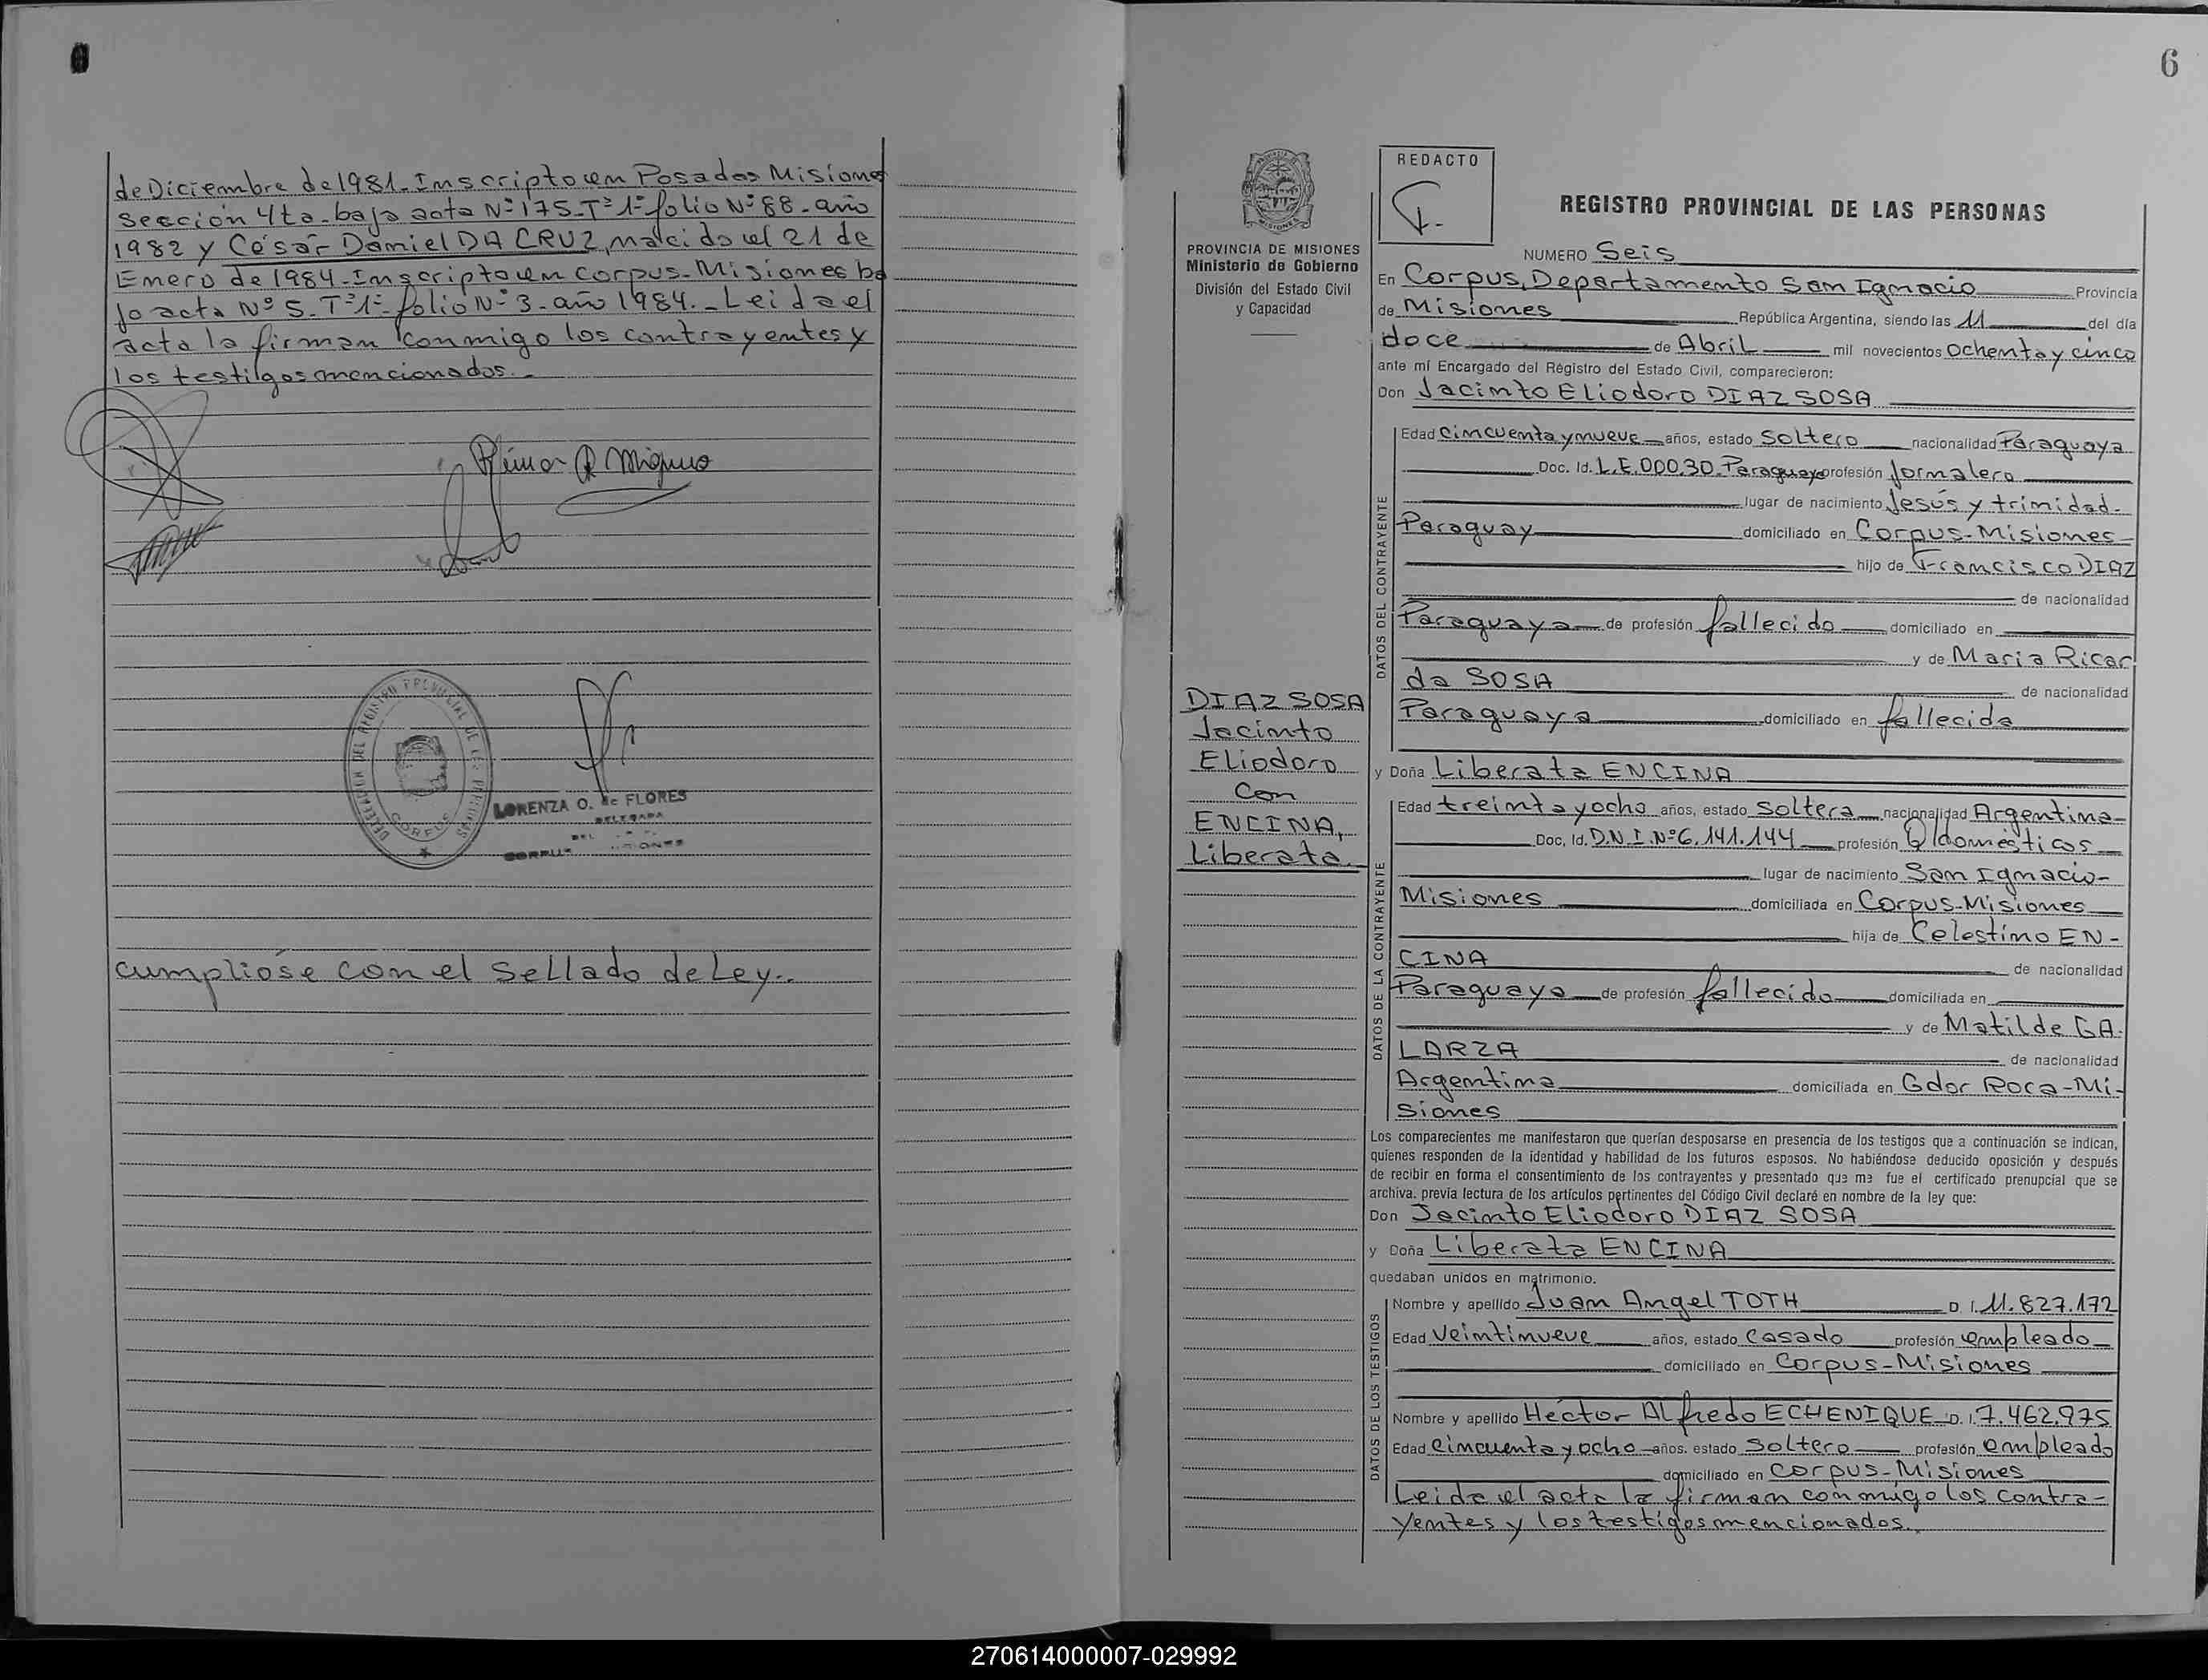 de Diciembre de 1981. Inscripto en Posadas Misiones
Sección 4ta. bajo acta Nº 175-Tº1º folio Nº 88. año
1982 y César Daniel DA CRUZ, nacido el 21 de
Enero de 1984. Inscripto en Corpus. Misiones ba
jo acta Nº 5. Tº1º folio Nº 3. año 1984. Leida el
acta la firman conmigo los contrayentes y
los testigos mencionados.
CORPUS
LORENZA O. de FLORES
DELEGADA
cumplióse con el Sellado de Ley..
6
PROVINCIA DE MISIONES
Ministerio de Gobierno
División del Estado Civil
y Capacidad
DIAZ SOSA
Jacinto
Eliodoro
Con
ENCINA,
Liberata
REDACTO
REGISTRO PROVINCIAL DE LAS PERSONAS
NUMERO Seis
En Corpus, Departamento San Ignacio Provincia
de Misiones República Argentina, siendo las 11 del día
doce de Abril mil novecientos ochenta y cinco
ante mí Encargado del Registro del Estado Civil, comparecieron:
Don Jacinto Eliodoro DIAZ SOSA
DATOS DEL CONTRAYENTE
Edad Cincuenta y nueve años, estado Soltero nacionalidad Paraguaya
Doc. Id. L.E.000.30. Paraguaya profesión Jornalero
lugar de nacimiento Jesús y trinidad-
Paraguay domiciliado en Corpus-Misiones-
hijo de Francisco DIAZ
de nacionalidad
Paraguaya de profesión fallecido domiciliado en
y de Maria Ricar
da SOSA de nacionalidad
Paraguaya domiciliado en fallecida
y Doña Liberata ENCINA
DATOS DE LA CONTRAYENTE
Edad treinta y ocho años, estado Soltera nacionalidad Argentina-
Doc. Id. D.N.I.Nº6.141.144 profesión Q/domésticos
lugar de nacimiento San Ignacio-
Misiones domiciliada en Corpus-Misiones
hija de Celestino EN-
CINA de nacionalidad
Paraguaya de profesión fallecido domiciliada en
y de Matilde GA-
LARZA de nacionalidad
Argentina domiciliada en Gdor Roca-Mi-
siones
Los comparecientes me manifestaron que querían desposarse en presencia de los testigos que a continuación se indican,
quienes responden de la identidad y habilidad de los futuros esposos. No habiéndose deducido oposición y después
de recibir en forma el consentimiento de los contrayentes y presentado que me fue el certificado prenupcial que se
archiva. previa lectura de los artículos pertinentes del Código Civil declaré en nombre de la ley que:
Don Jacinto Eliodoro DIAZ SOSA
y Doña Liberata ENCINA
quedaban unidos en matrimonio.
DATOS DE LOS TESTIGOS
Nombre y apellido Juan Angel TOTH D.I. 11.827.172
Edad Veintinueve años, estado Casado profesión empleado
domiciliado en Corpus-Misiones
Nombre y apellido Héctor Alfredo ECHENIQUE D.I. 7.462.975
Edad Cincuenta y ocho años. estado Soltero profesión empleado
domiciliado en Corpus-Misiones
Leida el acta la firman conmigo los contra-
yentes y los testigos mencionados.
270614000007-029992